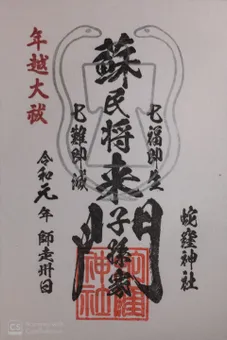 七福即生
蛇窪神社
蘇民将来子孫家門
七難即滅
年越大祓
令和元年 師走卅日
CS